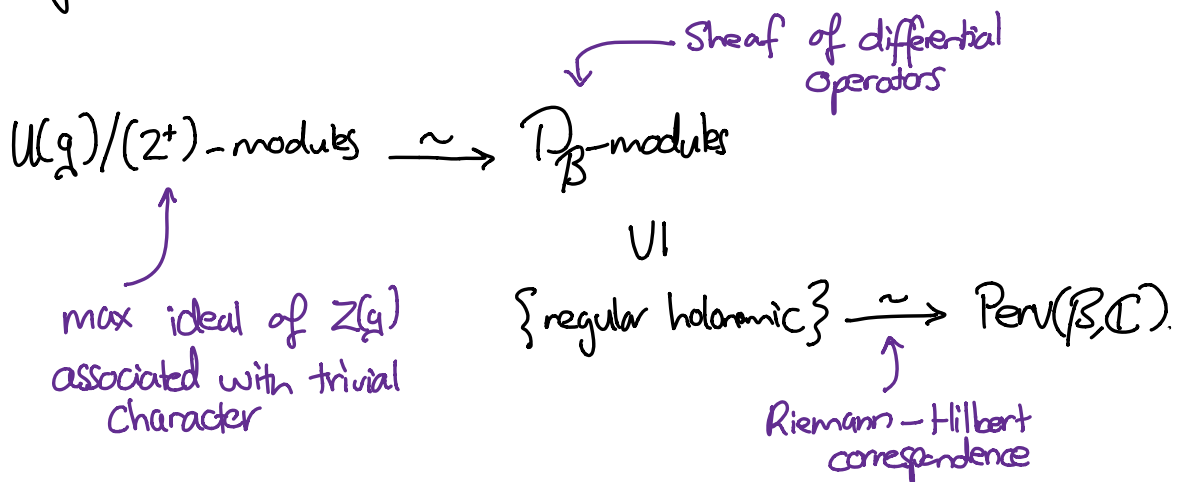 Sheaf of differential
operators
U(g)/(Z⁺)-modules ∼→ D_B-modules
UI
max ideal of Z(g)
associated with trivial
character
{regular holonomic} ∼→ Perv(B,ℂ).
Riemann-Hilbert
correspondence